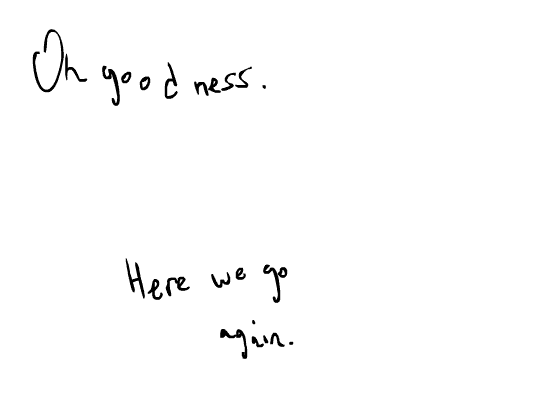 Oh goodness.
Here we go
again.